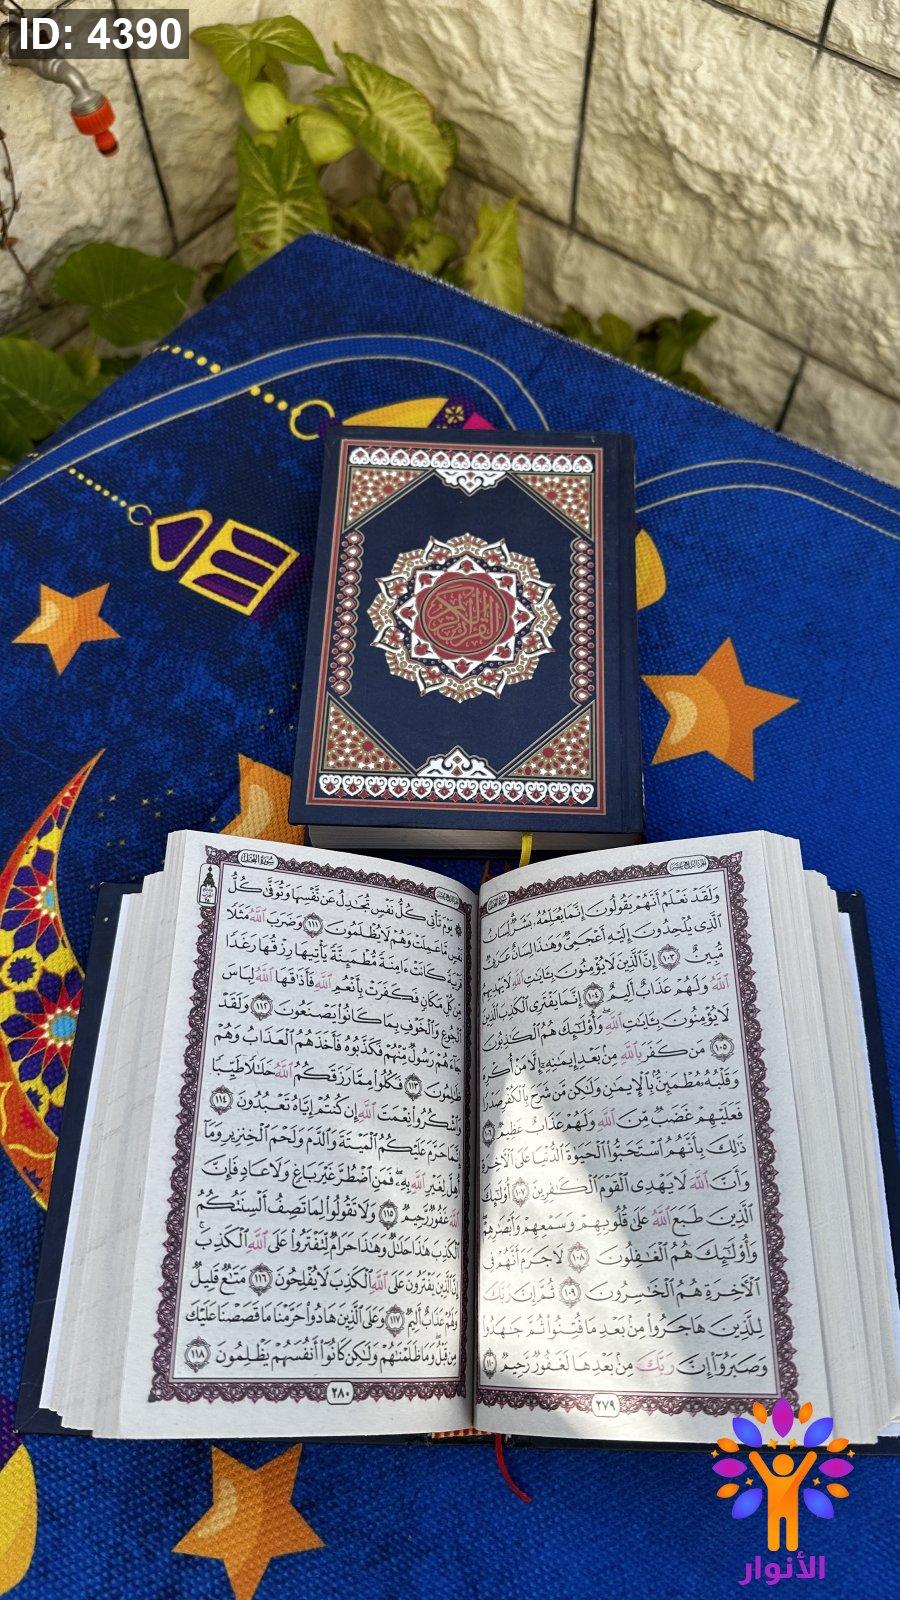 ID: 4390
القرآن الكريم
سورة النحل
وَلَقَدْ نَعْلَمُ أَنَّهُمْ يَقُولُونَ إِنَّمَا يُعَلِّمُهُ بَشَرٌ لِّسَانُ
الَّذِي يُلْحِدُونَ إِلَيْهِ أَعْجَمِيٌّ وَهَٰذَا لِسَانٌ عَرَبِيٌّ
مُّبِينٌ ١٠٣ إِنَّ الَّذِينَ لَا يُؤْمِنُونَ بِآيَاتِ اللَّهِ لَا يَهْدِيهِمُ
اللَّهُ وَلَهُمْ عَذَابٌ أَلِيمٌ ١٠٤ إِنَّمَا يَفْتَرِي الْكَذِبَ الَّذِينَ
لَا يُؤْمِنُونَ بِآيَاتِ اللَّهِ وَأُولَٰئِكَ هُمُ الْكَاذِبُونَ
١٠٥ مَن كَفَرَ بِاللَّهِ مِن بَعْدِ إِيمَانِهِ إِلَّا مَنْ أُكْرِهَ
وَقَلْبُهُ مُطْمَئِنٌّ بِالْإِيمَانِ وَلَٰكِن مَّن شَرَحَ بِالْكُفْرِ صَدْرًا
فَعَلَيْهِمْ غَضَبٌ مِّنَ اللَّهِ وَلَهُمْ عَذَابٌ عَظِيمٌ ١٠٦
ذَٰلِكَ بِأَنَّهُمُ اسْتَحَبُّوا الْحَيَاةَ الدُّنْيَا عَلَى الْآخِرَةِ
وَأَنَّ اللَّهَ لَا يَهْدِي الْقَوْمَ الْكَافِرِينَ ١٠٧ أُولَٰئِكَ
الَّذِينَ طَبَعَ اللَّهُ عَلَىٰ قُلُوبِهِمْ وَسَمْعِهِمْ وَأَبْصَارِهِمْ
وَأُولَٰئِكَ هُمُ الْغَافِلُونَ ١٠٨ لَا جَرَمَ أَنَّهُمْ فِي
الْآخِرَةِ هُمُ الْخَاسِرُونَ ١٠٩ ثُمَّ إِنَّ رَبَّكَ
لِلَّذِينَ هَاجَرُوا مِن بَعْدِ مَا فُتِنُوا ثُمَّ جَاهَدُوا
وَصَبَرُوا إِنَّ رَبَّكَ مِن بَعْدِهَا لَغَفُورٌ رَّحِيمٌ ١١٠
٢٧٩
سورة النحل
يَوْمَ تَأْتِي كُلُّ نَفْسٍ تُجَادِلُ عَن نَّفْسِهَا وَتُوَفَّىٰ كُلُّ
نَفْسٍ مَّا عَمِلَتْ وَهُمْ لَا يُظْلَمُونَ ١١١ وَضَرَبَ اللَّهُ مَثَلًا
قَرْيَةً كَانَتْ آمِنَةً مُّطْمَئِنَّةً يَأْتِيهَا رِزْقُهَا رَغَدًا
مِّن كُلِّ مَكَانٍ فَكَفَرَتْ بِأَنْعُمِ اللَّهِ فَأَذَاقَهَا اللَّهُ لِبَاسَ
الْجُوعِ وَالْخَوْفِ بِمَا كَانُوا يَصْنَعُونَ ١١٢ وَلَقَدْ
جَاءَهُمْ رَسُولٌ مِّنْهُمْ فَكَذَّبُوهُ فَأَخَذَهُمُ الْعَذَابُ وَهُمْ
ظَالِمُونَ ١١٣ فَكُلُوا مِمَّا رَزَقَكُمُ اللَّهُ حَلَالًا طَيِّبًا
وَاشْكُرُوا نِعْمَتَ اللَّهِ إِن كُنتُمْ إِيَّاهُ تَعْبُدُونَ ١١٤
إِنَّمَا حَرَّمَ عَلَيْكُمُ الْمَيْتَةَ وَالدَّمَ وَلَحْمَ الْخِنزِيرِ وَمَا
أُهِلَّ لِغَيْرِ اللَّهِ بِهِ فَمَنِ اضْطُرَّ غَيْرَ بَاغٍ وَلَا عَادٍ فَإِنَّ
اللَّهَ غَفُورٌ رَّحِيمٌ ١١٥ وَلَا تَقُولُوا لِمَا تَصِفُ أَلْسِنَتُكُمُ
الْكَذِبَ هَٰذَا حَلَالٌ وَهَٰذَا حَرَامٌ لِّتَفْتَرُوا عَلَى اللَّهِ الْكَذِبَ
إِنَّ الَّذِينَ يَفْتَرُونَ عَلَى اللَّهِ الْكَذِبَ لَا يُفْلِحُونَ ١١٦ مَتَاعٌ قَلِيلٌ
وَلَهُمْ عَذَابٌ أَلِيمٌ ١١٧ وَعَلَى الَّذِينَ هَادُوا حَرَّمْنَا مَا قَصَصْنَا عَلَيْكَ
مِن قَبْلُ وَمَا ظَلَمْنَاهُمْ وَلَٰكِن كَانُوا أَنفُسَهُمْ يَظْلِمُونَ ١١٨
٢٨٠
الأنوار